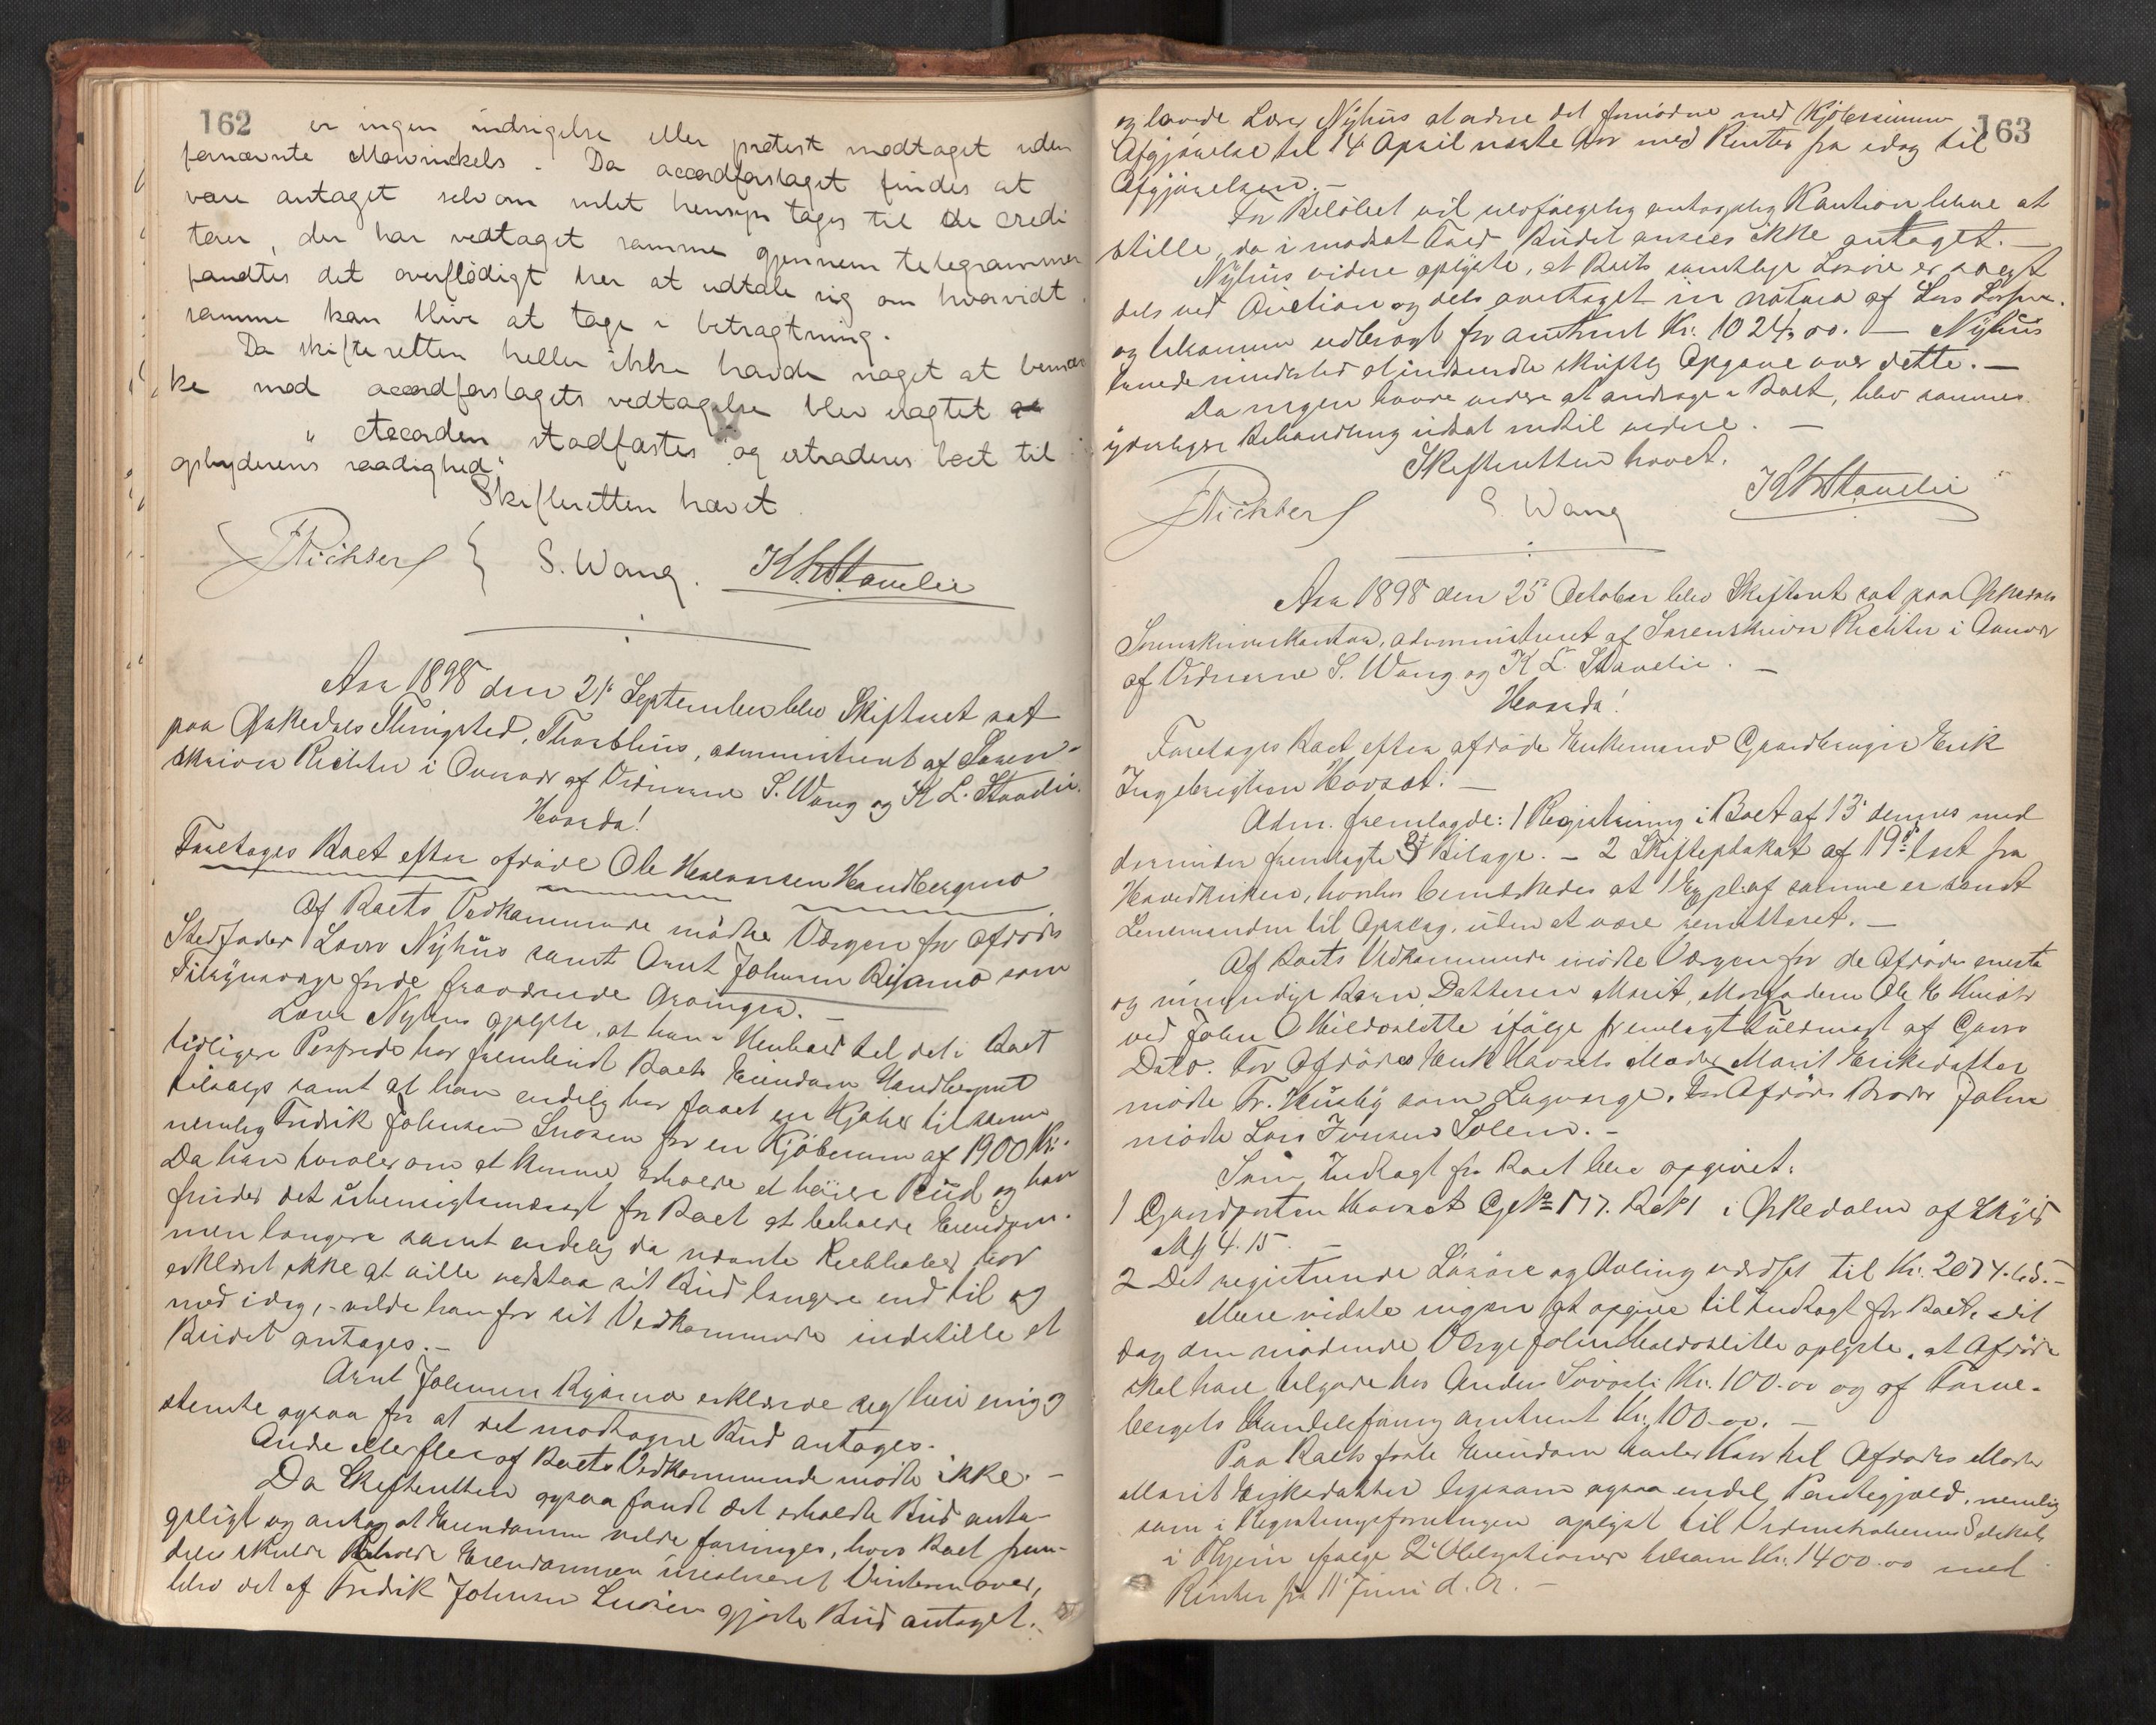 162
er ingen indsigelse eller protest modtaget uden
fornævnte Mowinckels. Da accordforslaget findes at
være antaget selv om intet hensyn tages til de credi
torer, der har vedtaget samme gjennem telegrammer
fandtes det overflødigt her at udtale sig om hvorvidt
samme kan blive at tage i betragtning.
Da skifteretten heller ikke havde noget at bemær
ke mod accordforslagets vedtagelse blev eragtet
"Accorden stadfæstes og extraderes boet til
opbyderens raadighed"
Skifteretten hævet
Richter S. Wang. K. L. Stavelie
Aar 1898 den 21de September blev Skifteret sat
paa Ørkedals Thingsted, Thorshus, administreret af Soren-
skriver Richter i Overvær af Vidnerne S. Wang og K L. Stavelie.
Hvorda!
Foretages Boet efter afdøde Ole Halvorsen Handbergmo
Af Boets Vedkommende mødte Værgen for Afdødes
Stedfader Lars Nyhus samt Arnt Johnsen Risamo som
Tilsynsværge for de fraværende Arvinger. —
Lars Nyhus oplyste, at han i Henhold til det i Boet
tidligere Passerede har frembudt Boets Eiendom Handbergmo
tilsalgs samt at han endelig har faaet en Kjøber til samme
nemlig Fredrik Johnsen Snosen for en Kjøbesum af 1900 Kr.
Da han tvivler om at kunne erholde et høiere Bud og han
finder det uhensigtsmæssigt for Boet at beholde Eiendom-
men længere samt endelig da nævnte Liebhaber har
erklæret ikke at ville vedstaa sit Bud længere end til og
med idag, – vilde han for sit Vedkommende indstille at
Budet antages. –
Arnt Johnsen Risamo erklærede sig heri enig og
stemte ogsaa for at det modtagne Bud antages. –
Andre eller flere af Boets Vedkommende mødte ikke. –
Da Skifteretten ogsaa fandt det erholdte Bud anta-
geligt og antog at Eiendommen vilde forringes, hvis Boet frem-
deles skulde beholde Eiendommen urealiseret Vinteren over,
blev det af Fredrik Johnsen Snosen gjorte Bud antaget.
163
og lovede Lars Nyhus at ordne det fornødne med Kjøbesummens
Afgjørelse til 14 April næste Aar med Renter fra idag til
Afgjørelsen. –
For Beløbet vil selvfølgelig antagelig Kaution blive at
stille, da i modsat Fald Budet ansees ikke antaget. –
Nyhus videre oplyste, at Boets samtlige Løsøre er solgt
dels ved Auction og dels overtaget in natura af Lars
og tilsammen udbragt for omtrent Kr. 1024,00. – Nyhus
lovede at indsende skriftlig Opgave over dette. –
Da ingen havde videre at andrage i Boet, blev sammes
yderligere Behandling udsat indtil videre. –
Skifteretten hævet.
Richter S. Wang K L Stavelie
Aar 1898 den 25de October blev Skifteret sat paa Ørkedals
Sorenskriverkontor, administreret af Sorenskriver Richter i Overvær
af Vidnerne S. Wang og K L. Stavelie. –
Hvorda!
Foretages Boet efter afdøde Enkemand Gaardbruger Erik
Ingebrigtsen Hovsæt. –
Adm. fremlagde: 1 Registrering i Boet af 13de dennes med
derunder fremlagte 3 Bilage. – 2 Skifteplakat af 19de læst fra
Hovedkirken, hvorhos bemærkedes at 1 Expl. af samme er sendt
Lensmanden til Opslag, uden at være remitteret. –
Af Boets Vedkommende mødte Værgen for de Afdødes eneste
og umyndige Barn, Datteren Marit, Morfaderen Ole E
ved John O ifølge fremlagt Fuldmagt af Gaars
Dato. For Afdødes Erik Hovsæts Moder Marit Eriksdatter
mødte Fr. Husby som Lagværge. For Afdødes Broder John
mødte Lars Jonsen Solem. –
Som Indtægt for Boet blev opgivet:
1 Gaardparten Hovsæt G.No 177. B.No 1 i Ørkedalen af Skyld
Mk 4.15. –
2 Det registrerede Løsøre og Avling værdsat til Kr. 2074.65. –
Mere vidste ingen at opgive til Indtægt for Boet. Dit
dog den mødende Værge John oplyste, at Afdøde
skal have tilgode hos Anders Kr. 100.00 og af
bergets Handelsforening omtrent Kr. 100.00. –
Paa Boets faste Eiendom hviler Kaar til Afdødes Moder
Marit Eriksdatter ligesom ogsaa endel Pantegjæld, nemlig
som i Registreringsforretningen oplyst til Videnskabernes Selskab
i Thjem ifølge 2de Obligationer tilsam Kr. 1400.00 med
Renter fra 11 Juni d. A. –